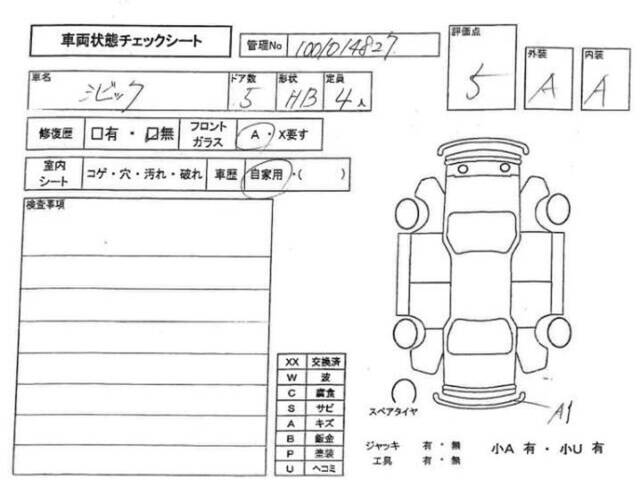 車両状態チェックシート
管理No 1001014827
評価点 5
外装 A
内装 A
車名 シビック
ドア数 5
形状 HB
定員 4人
修復歴 □有・☑無
フロントガラス A・X要す
室内シート コゲ・穴・汚れ・破れ
車歴 自家用・( )
検査事項
XX 交換済
W 波
C 腐食
S サビ
A キズ
B 鈑金
P 塗装
U ヘコミ
スペアタイヤ
A1
ジャッキ 有・無
工具 有・無
小A 有・小U 有